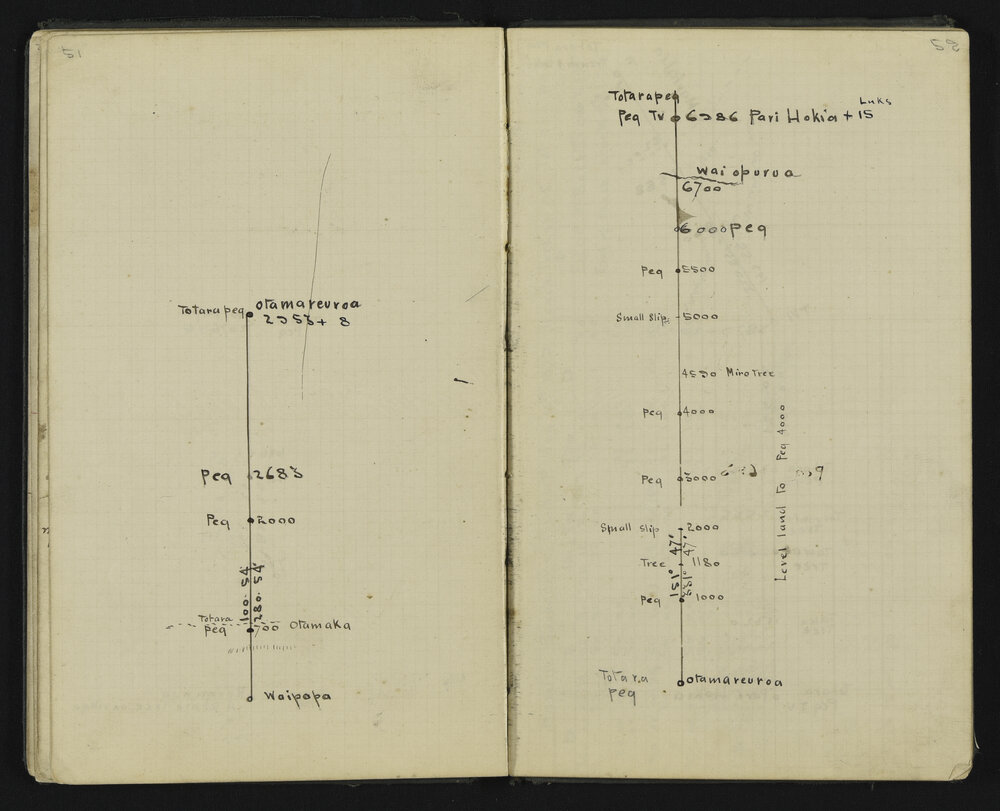 51
Totara peg otamareuroa
2953 + 8
Peg 2683
Peg 2000
100· 54'
280· 54'
Totara
Peg 700 Otamaka
Waipapa
52
Totara peg
Peg Tv 6986 Pari Hokia + 15 Luks
wai opurua
6700
6000 Peg
Peg 5500
Small Slip 5000
4590 Miro Tree
Peg 4000
Peg 3000
Level land to Peg 4000
Small slip 2000
151° 47'
331° 47'
Tree 1180
Peg 1000
Totara
Peg otamareuroa